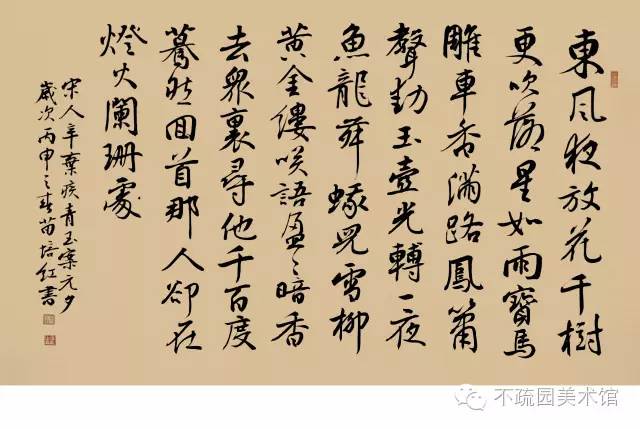 東風夜放花千樹
更吹落星如雨寶馬
雕車香滿路鳳簫
聲動玉壺光轉一夜
魚龍舞蛾兒雪柳
黃金縷笑語盈〻暗香
去衆裏尋他千百度
驀然回首那人卻在
燈火闌珊處
宋人辛棄疾青玉案元夕
歲次丙申之春苗培紅書
不疏园美术馆